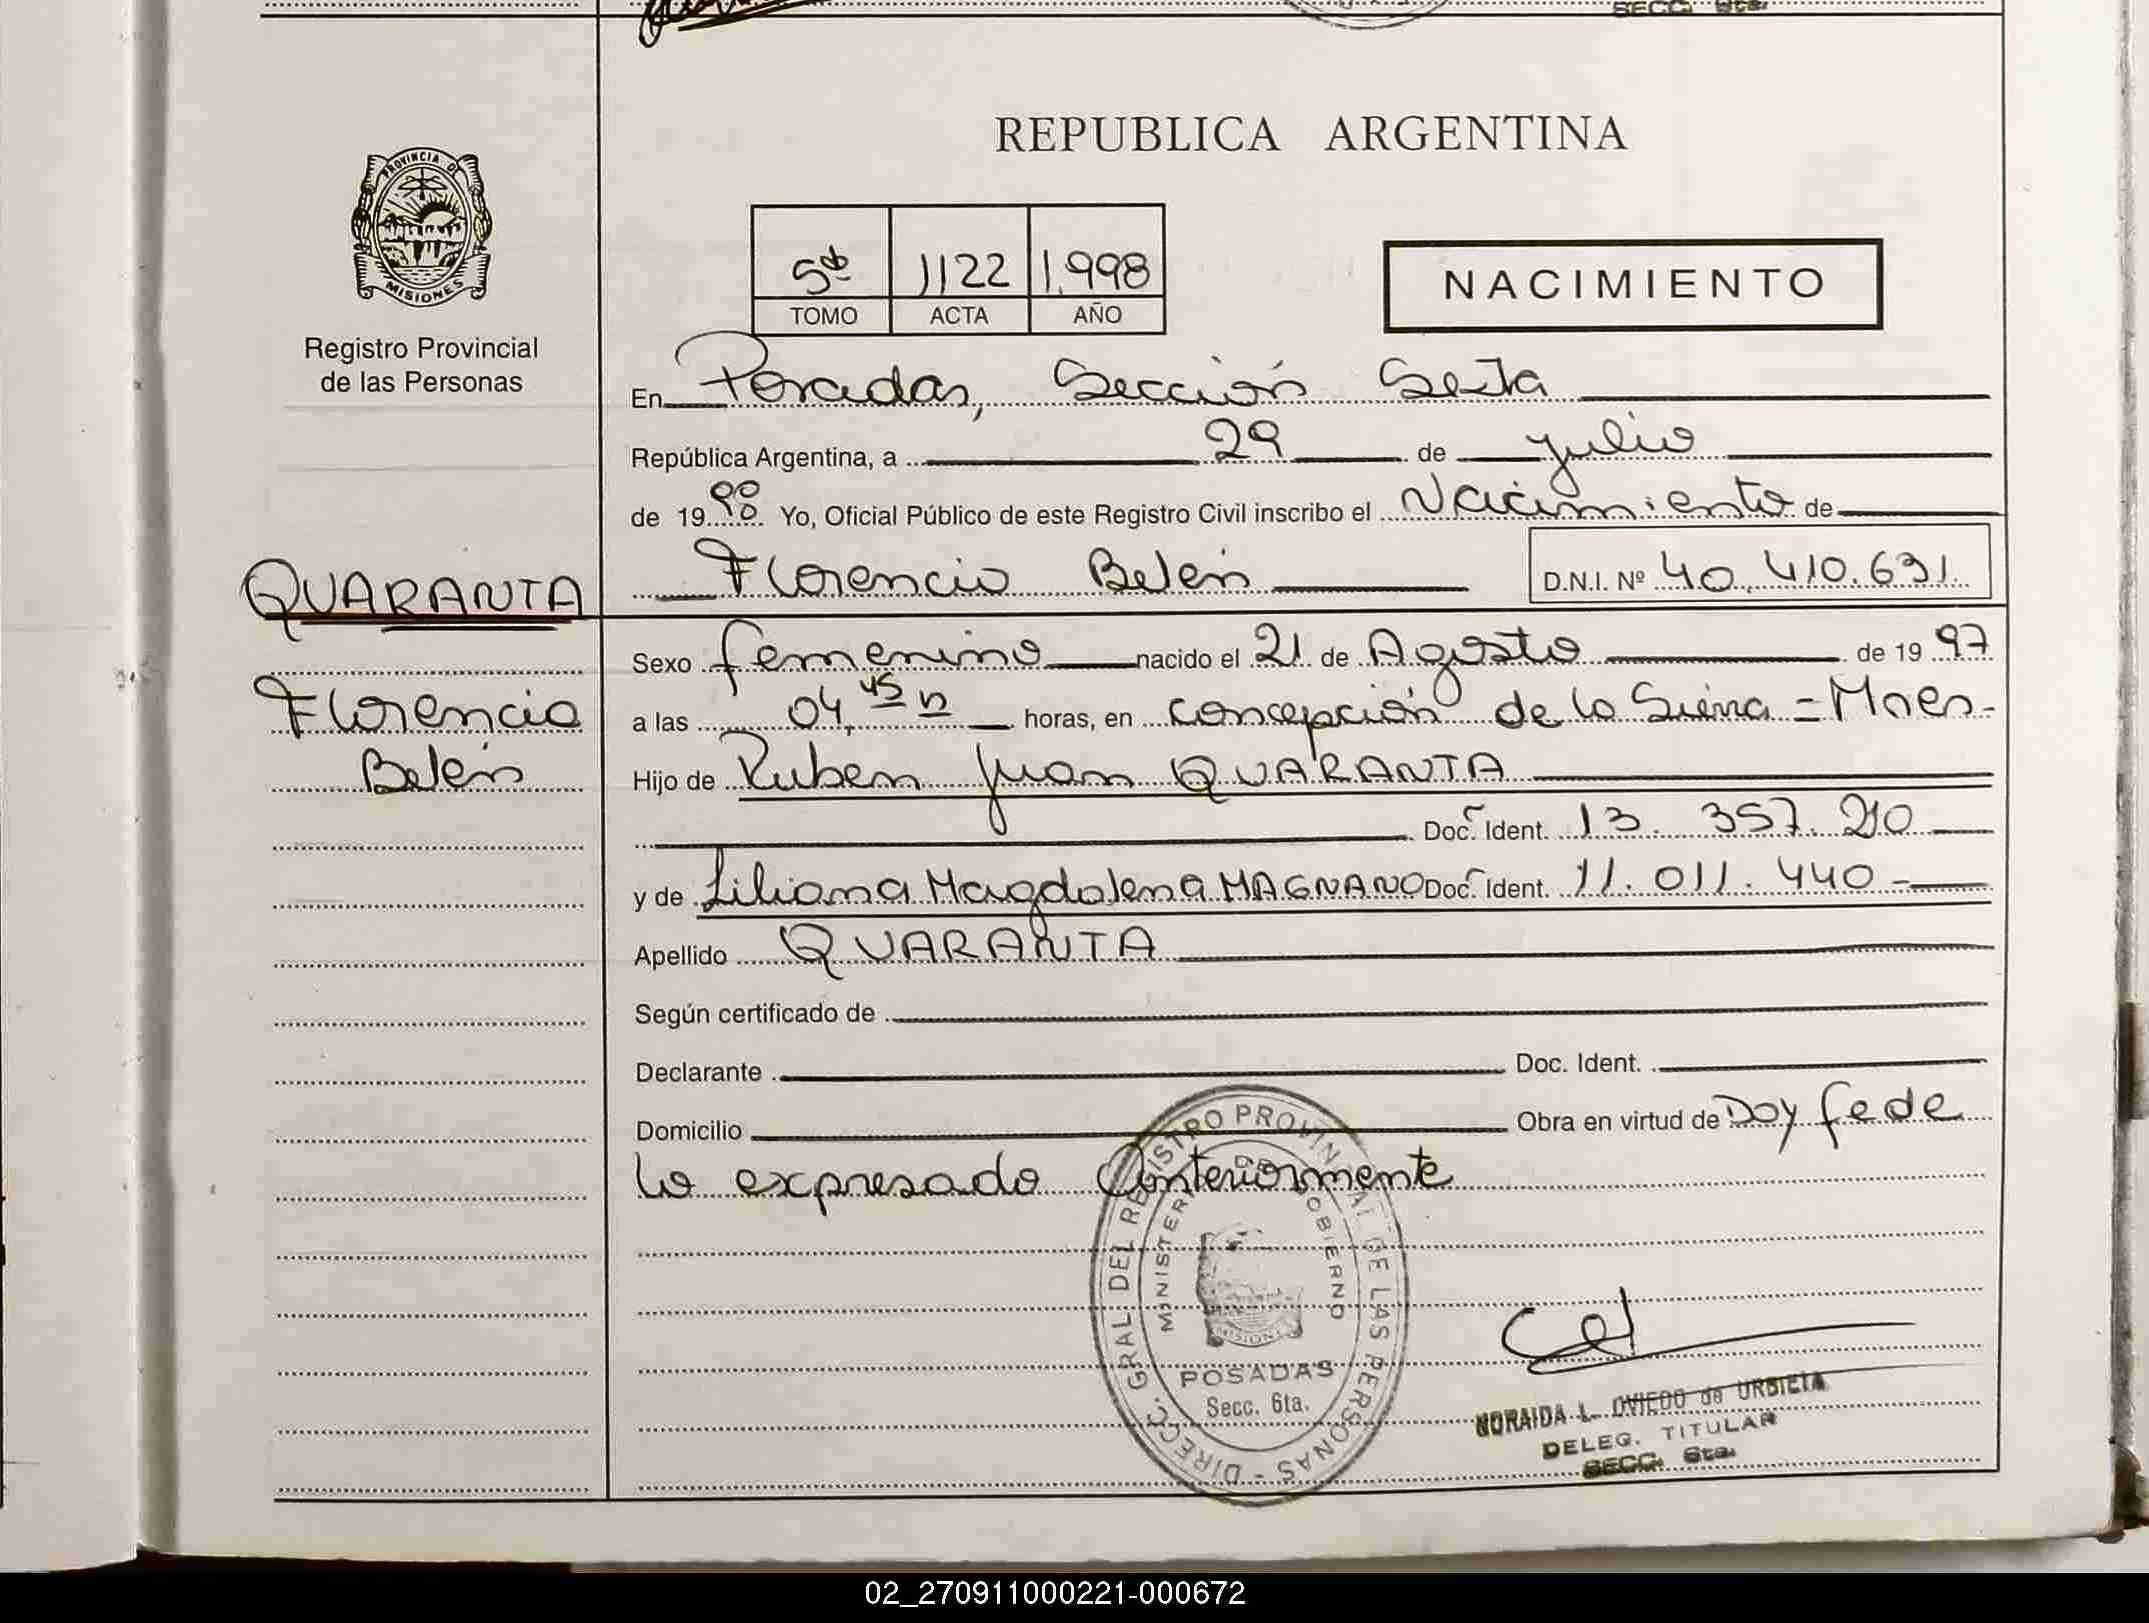 SECC. 6ta.
REPUBLICA ARGENTINA
PROVINCIA DE
MISIONES
Registro Provincial
de las Personas
5to 1122 1.998
TOMO ACTA AÑO
NACIMIENTO
En Posadas, Sección Sexta
República Argentina, a 29 de julio
de 1998 Yo, Oficial Público de este Registro Civil inscribo el Nacimiento de
Florencia Belén D.N.I. Nº 40.410.631.
QUARANTA
Florencia
Belén
Sexo femenino nacido el 21 de Agosto de 1997
a las 04,45 horas, en Concepción de la Sierra = Mnes-
Hijo de Ruben Juan QUARANTA
Doc. Ident. 13.357.210
y de Liliana Magdalena MAGNANO Doc. Ident. 11.011.440-
Apellido QUARANTA
Según certificado de
Declarante Doc. Ident.
Domicilio Obra en virtud de Doy fe de
lo expresado Anteriormente
DIRECC. GRAL DEL REGISTRO PROVINCIAL DE LAS PERSONAS -
MINISTERIO DE GOBIERNO
MISIONES
POSADAS
Secc. 6ta.
NORAIDA L. OVIEDO de URBIETA
DELEG. TITULAR
SECC. 6ta.
02_270911000221-000672